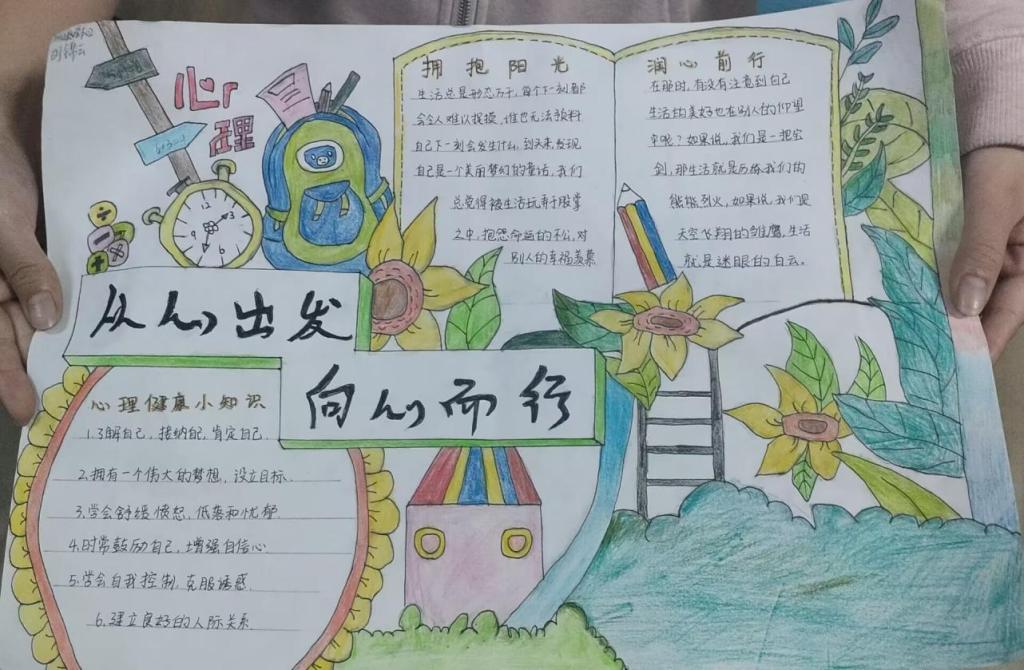 刘锦云
心
理
12
3
6
拥抱阳光
生活总是形态万千，每个下一刻都
会令人难以捉摸，谁也无法预料
自己下一刻会发生什么，到头来，发现
自己是一个美丽梦幻的童话，我们
总觉得被生活玩弄于股掌
之中，抱怨命运的不公，对
别人的幸福羡慕
润心前行
在那时，有没有注意到自己
生活的美好也在别人的仰望
中呢？如果说，我们是一把宝
剑，那生活就是历炼我们的
熊熊烈火，如果说，我们是
天空飞翔的雏鹰，生活
就是迷眼的白云。
从心出发
向心而行
心理健康小知识
1.了解自己，接纳自己，肯定自己.
2.拥有一个伟大的梦想，设立目标.
3.学会舒缓愤怒，低落和忧郁.
4.时常鼓励自己，增强自信心.
5.学会自我控制，克服诱惑.
6.建立良好的人际关系.